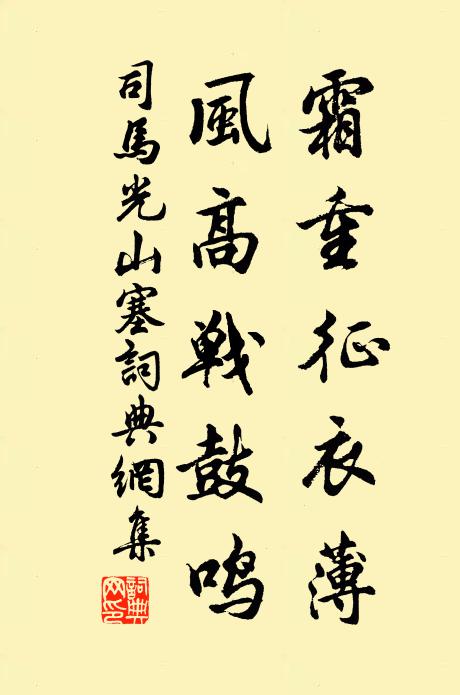 霜重征衣薄
風高戦鼓鳴
司馬光山塞詞典網集
詞典
网印